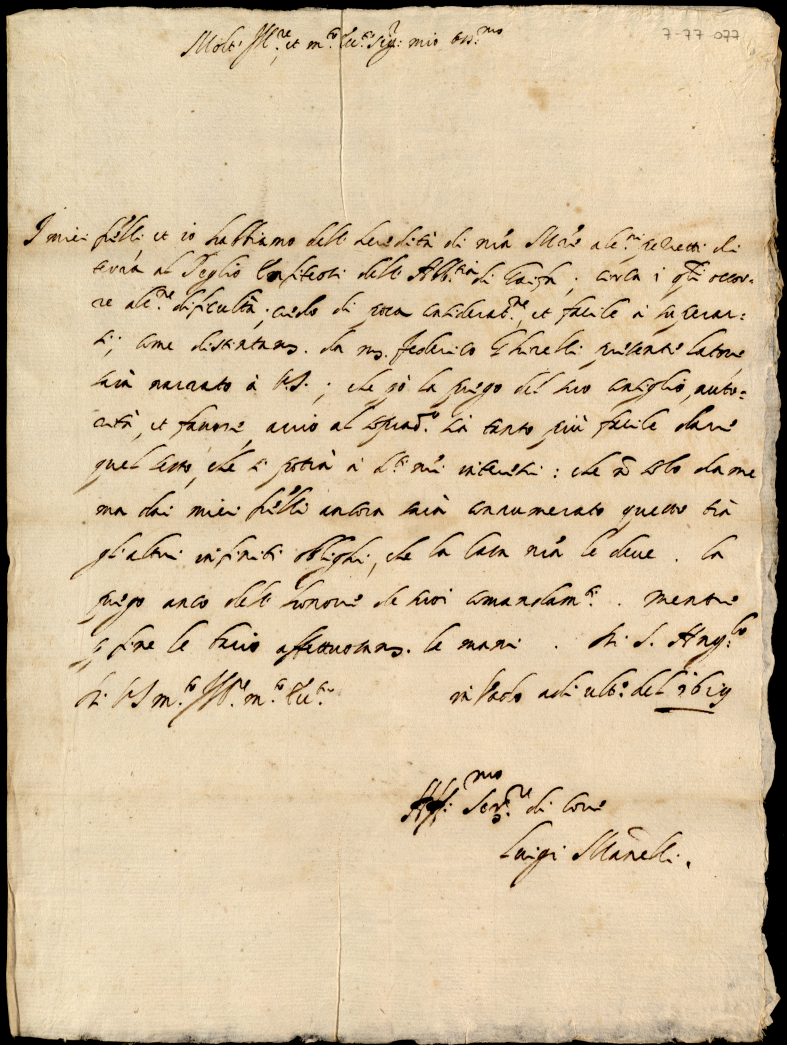 7-77 077
Molt' Ill.re, et m.to Ecc.te Sig.r mio oss.mo
I miei f'elli et io habbiamo dell' heredità di n'ra M're alc.ni pezzetti di
terra al Teglio livellati dell' Abb.tia di ; circa i q'li occor-
re alc.ne dificultà, credo di poca considerat.ne, et facile à superar-
si; come distintam. da ms. Federico Ghirelli presente latore
sarà narrato à V.S.; che p'ò la prego del suo consiglio, auto-
rità, et favore, acciò al sia tanto più facile dare
quel sesto, che si potrà à d.ti n'ri interessi: che nò solo da me
ma dai miei f'elli ancora sarà connumerato questo trà
gl'altri infiniti oblighi, che la Casa n'ra le deve. la
prego anco dell' honore de suoi comandam.ti. mentre
p' fine le bacio affettuosam. le mani. Di S. Ang.lo
Di V.S. m.to Ill.re m.to Ecc.te in Vado adi ult.o del 1619
Aff.mo Ser.re di core
Luigi Manelli.